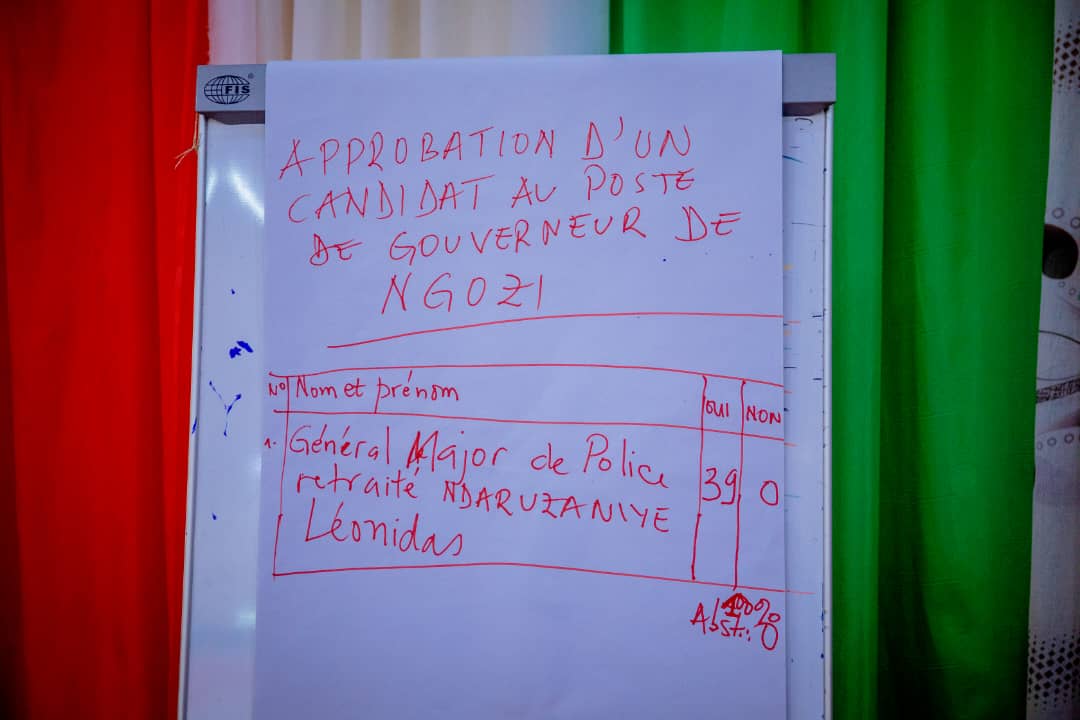 FIS
APPROBATION D'UN
CANDIDAT AU POSTE
DE GOUVERNEUR DE
NGOZI
N° Nom et prénom OUI NON
1. Général Major de Police 39 0
retraité NDARUZANIYE
Léonidas
Abst.: